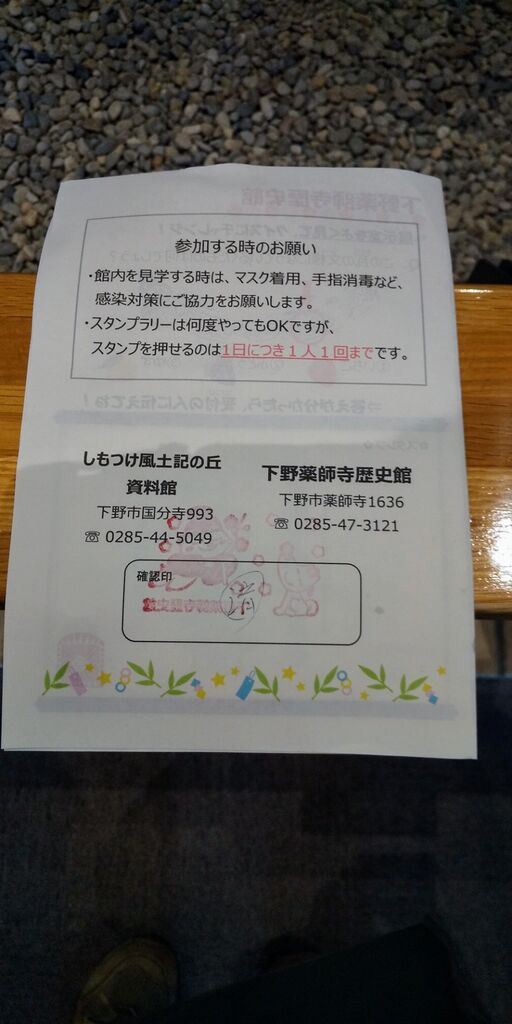 参加する時のお願い
・館内を見学する時は、マスク着用、手指消毒など、
感染対策にご協力をお願いします。
・スタンプラリーは何度やってもOKですが、
スタンプを押せるのは1日につき1人1回までです。
しもつけ風土記の丘
資料館
下野市国分寺993
☏ 0285-44-5049
下野薬師寺歴史館
下野市薬師寺1636
☏ 0285-47-3121
確認印